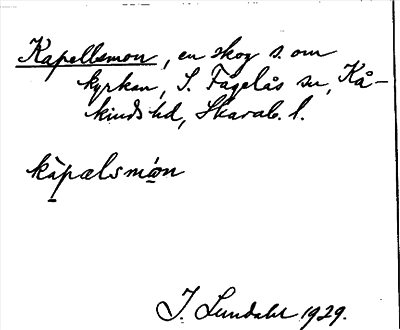 Kapellsmon, en skog s. om
kyrkan, S. Fågelås sn, Kå-
kinds hd, Skarab. l.
kàpælsmòn
I. Lundahl 1929.